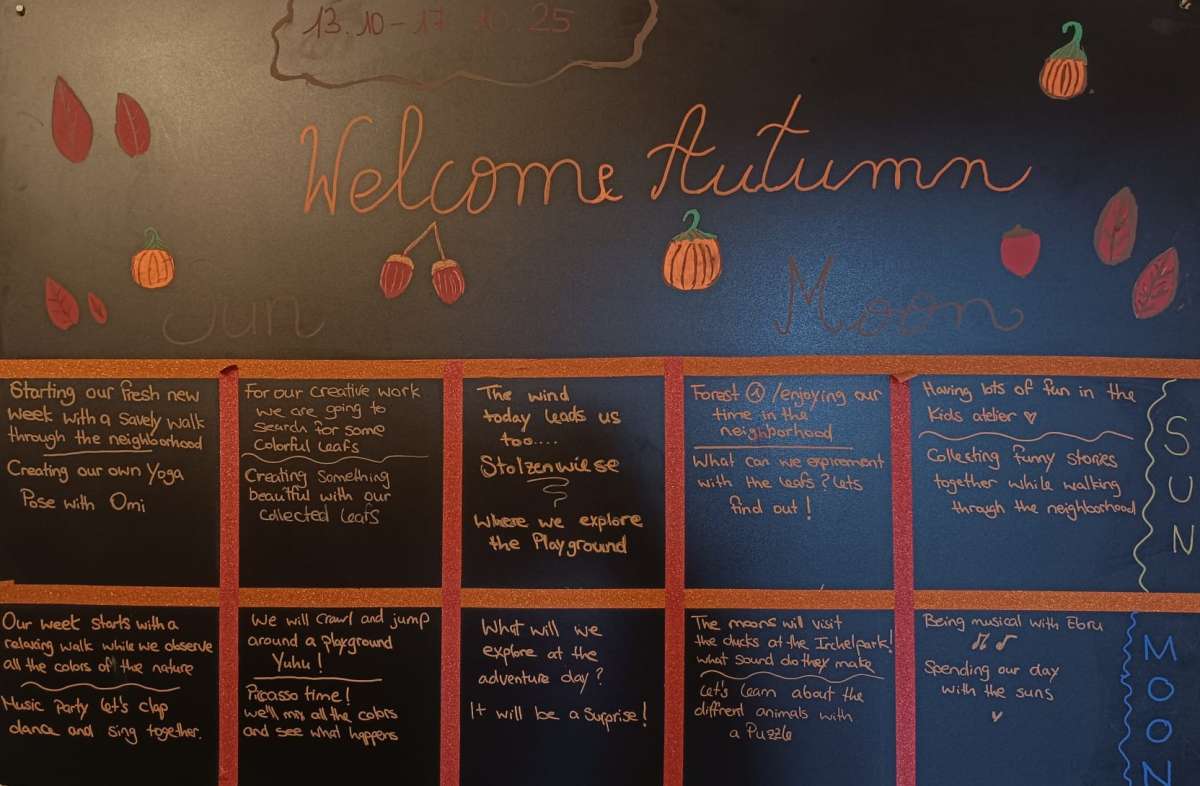 13.10 - 17.10.25
Welcome Autumn
Sun
Moon
Starting our fresh new
week with a savely walk
through the neighborhood
Creating our own Yoga
Pose with Omi
For our creative work
we are going to
search for some
colorful leafs
Creating something
beautful with our
collected leafs
The wind
today leads us
too....
Stolzenwiese
Where we explore
the Playground
Forest ① /enjoying our
time in the
neighborhood
What can we expirement
with the leafs? Lets
find out!
Having lots of fun in the
Kids atelier ♡
Collecting funny stories
together while walking
through the neighborhood
SUN
Our week starts with a
relaxing walk while we observe
all the colors of the nature
Music Party let's clap
dance and sing together.
We will crawl and jump
around a playground
Yuhu!
Picasso time!
we'll mix all the colors
and see what happens
What will we
explore at the
adventure day?
It will be a surprise!
The moons will visit
the ducks at the Irchelpark!
what sound do they make
Let's learn about the
diffrent animals with
a Puzzle
Being musical with Ebru
Spending our day
with the suns
MOON